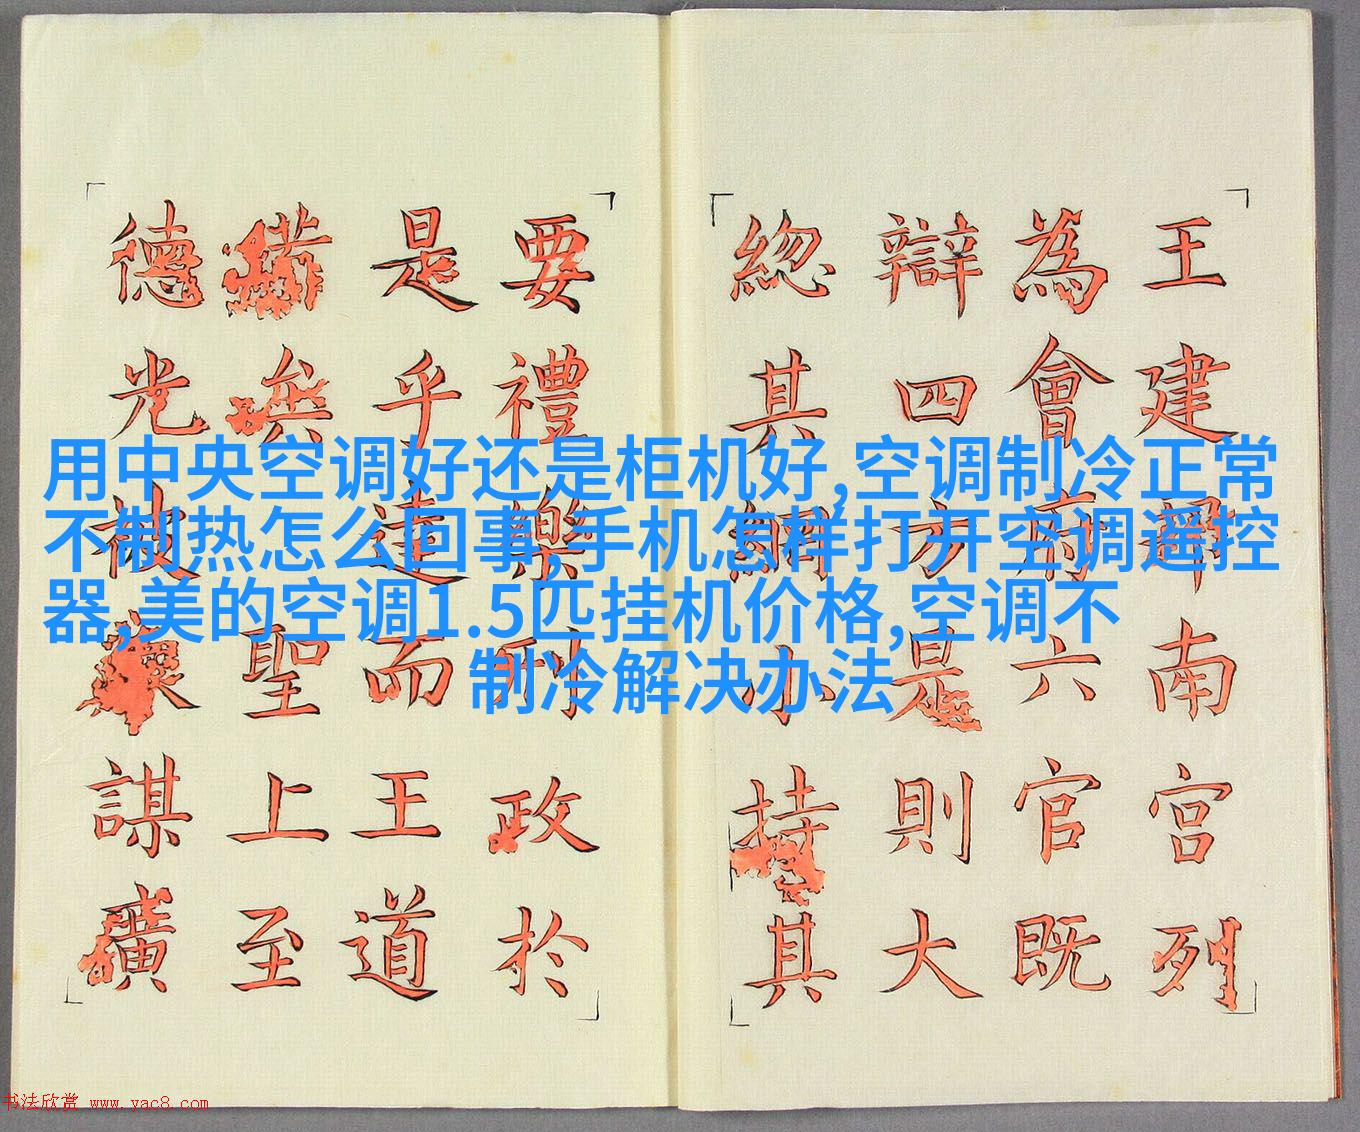 用中央空调好还是柜机好,空调制冷正常
不制热怎么回事,手机怎样打开空调遥控
器,美的空调1.5匹挂机价格,空调不
制冷解决办法
王建邦南宮列
為會府六官既
辯四方是則大
總其綱小持其
要禮樂刑政於
是乎達而王道
備矣聖上至
德光被謀廣
书法欣赏 www.yac8.com